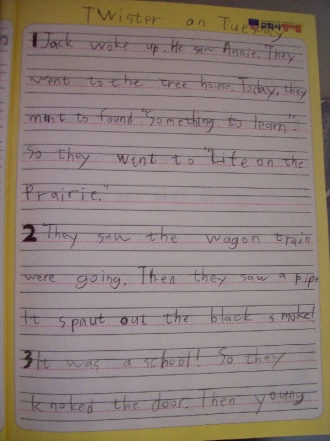 TWister on Tuesday
1 Jack woke up. He saw Annie. They
went to the tree house. Today, they
must to found "Something to learn".
So they went to "Life on the
Prairie."
2 They saw the wagon train
were going. Then they saw a pipe
It spaut out the black smoke!
3 It was a school! So they
knoked the door. Then young